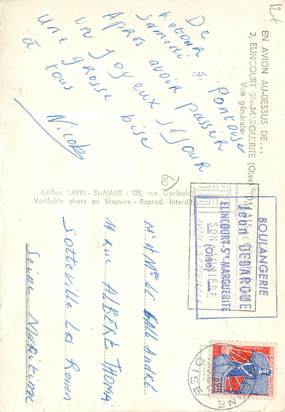 12€
EN AVION AU-DESSUS DE...
2. ELINCOURT Ste-MARGUERITE (Oise)
Vue générale
De
Retour
Samedi à
Après avoir passer
un Joyeux Séjour
une grosse bise
à tous
Nicole
60
Edition LAPIE - St-MAUR - 125, rue
Véritable photo en bromure - Reprod. interdite
BOULANGERIE
Léon DEBARQUE
ELINCOURT-Ste-MARGUERITE
(Oise)
André
14 Rue ALBERT THOMAS
Sotteville Les Rouen
Seine Maritime
OISE